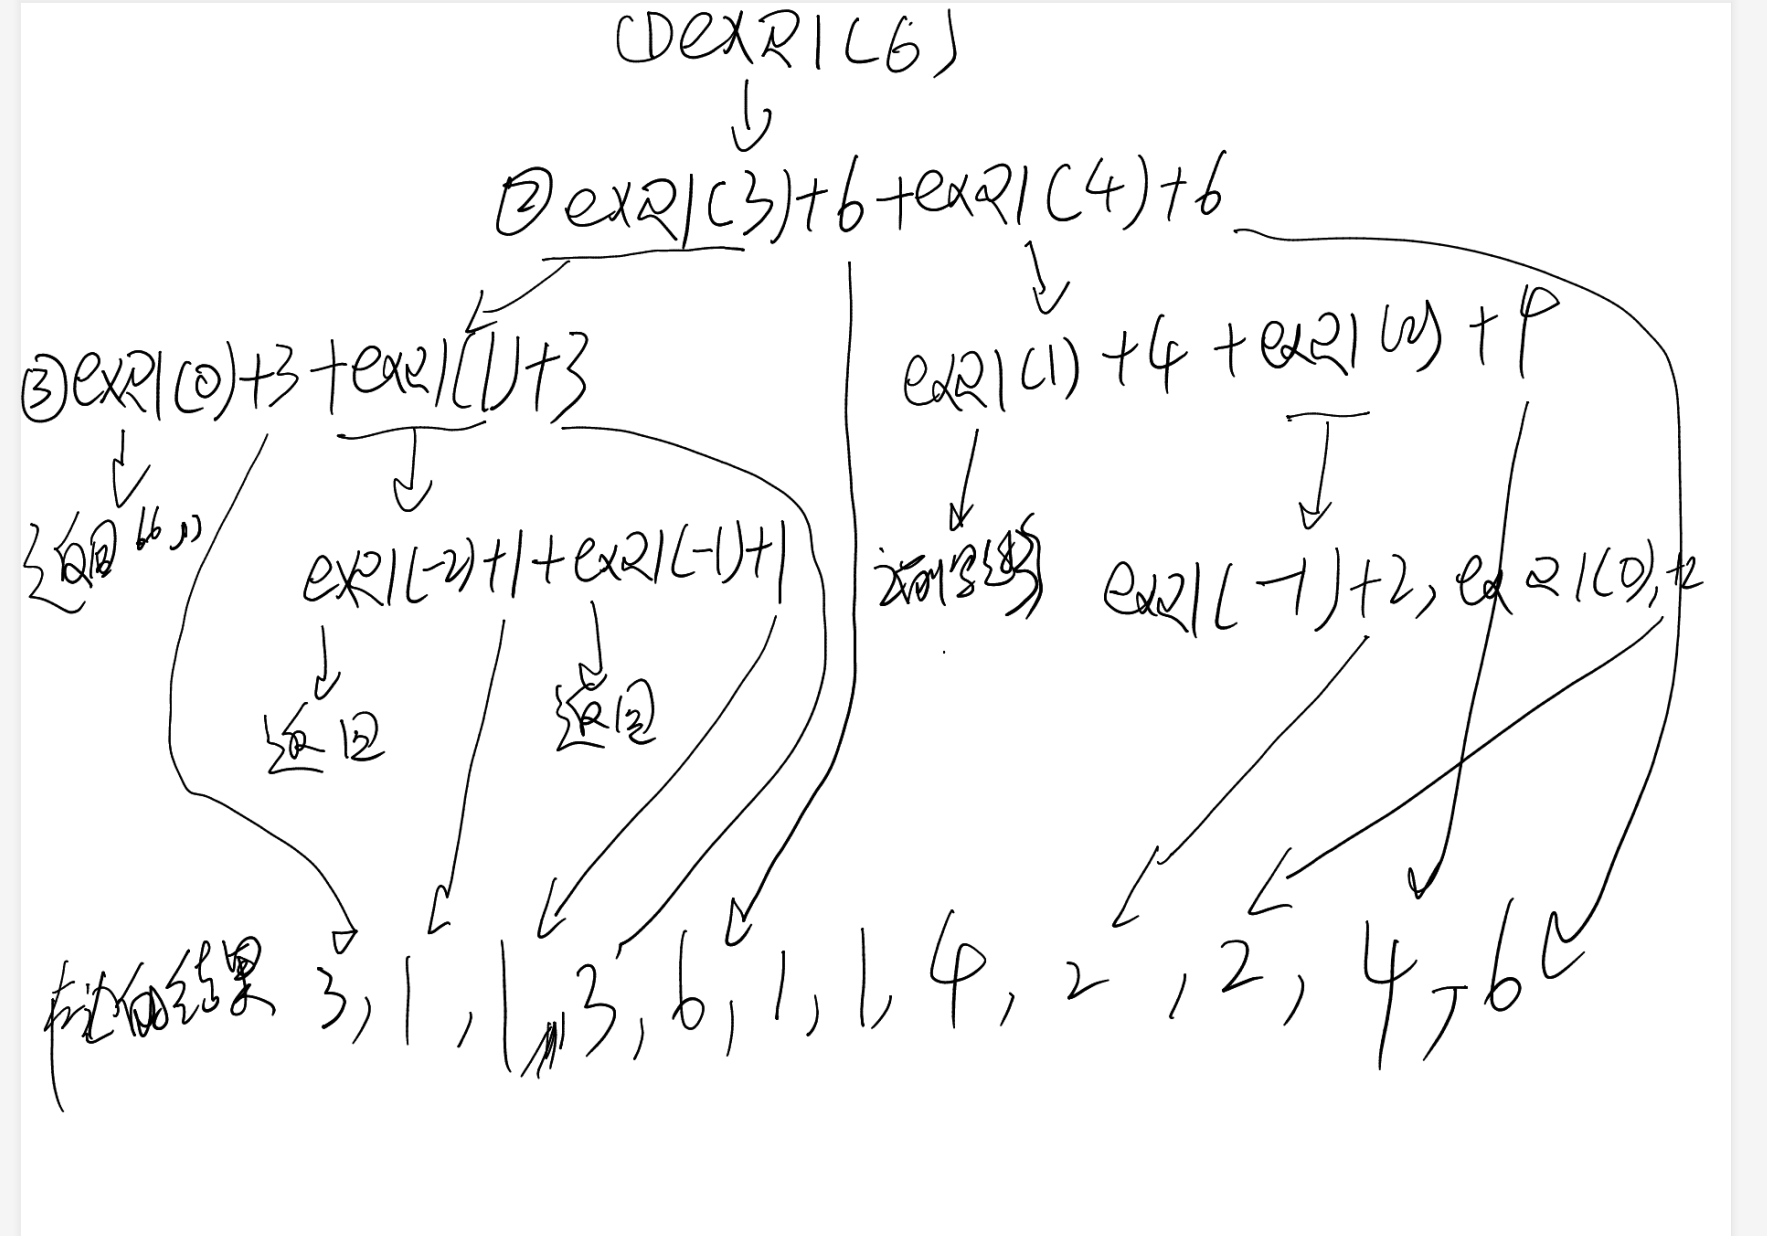 ①exR1(6)
②exR1(3)+6+exR1(4)+6
③exR1(0)+3+exR1(1)+3
exR1(1)+4+exR1(2)+4
返回“”
exR1(-2)+1+exR1(-1)+1
exR1(-1)+2, exR1(0),+2
返回
返回
的结果 3,1,1,3,6,1,1,4,2,2,4,6